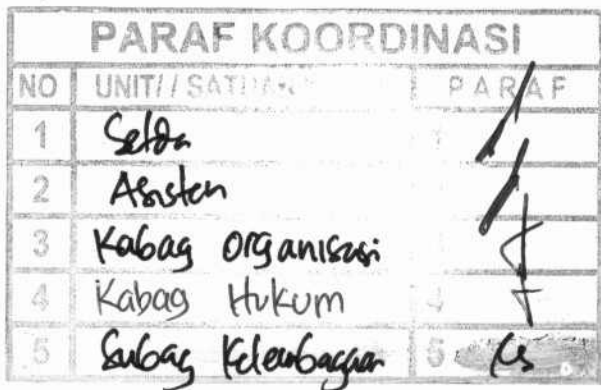 PARAF KOORDINASI
NO UNIT// SATUAN PARAF
1 Setda
2 Asisten
3 Kabag Organisasi
4 Kabag Hukum 4
5 Subag Kelembagaan 5